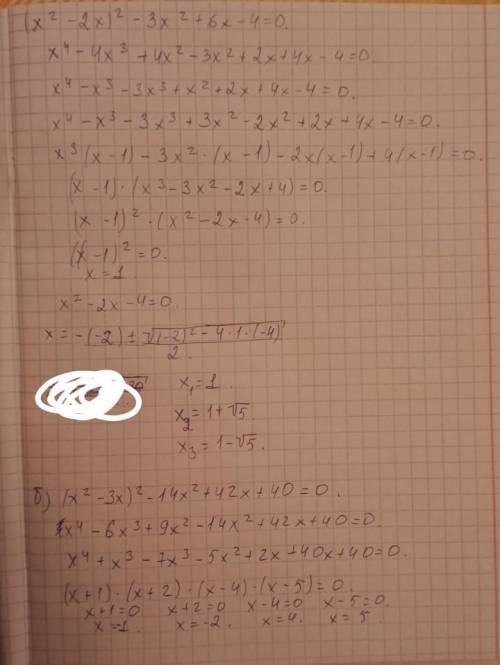 (x² - 2x)² - 3x² + 6x - 4 = 0.
x⁴ - 4x³ + 4x² - 3x² + 2x + 4x - 4 = 0.
x⁴ - x³ - 3x³ + x² + 2x + 4x - 4 = 0.
x⁴ - x³ - 3x³ + 3x² - 2x² + 2x + 4x - 4 = 0.
x³(x - 1) - 3x² · (x - 1) - 2x(x - 1) + 4(x - 1) = 0.
(x - 1) · (x³ - 3x² - 2x + 4) = 0.
(x - 1)² · (x² - 2x - 4) = 0.
(x - 1)² = 0.
x = 1
x² - 2x - 4 = 0.
x = -(-2) ± √(-2)² - 4 · 1 · (-4)
2
x₁ = 1.
x₂ = 1 + √5.
x₃ = 1 - √5.
б) (x² - 3x)² - 14x² + 42x + 40 = 0.
x⁴ - 6x³ + 9x² - 14x² + 42x + 40 = 0.
x⁴ + x³ - 7x³ - 5x² + 2x + 40x + 40 = 0.
(x + 1) · (x + 2) · (x - 4) · (x - 5) = 0.
x + 1 = 0 x + 2 = 0 x - 4 = 0 x - 5 = 0.
x = -1. x = -2. x = 4. x = 5